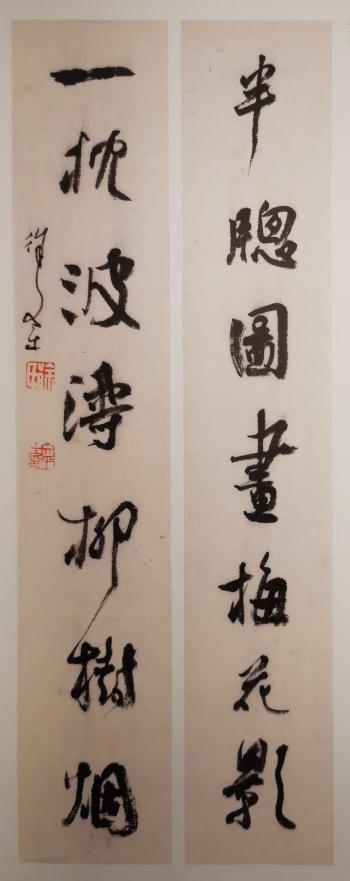 半牕圖畫梅花影
一枕波濤柳樹烟